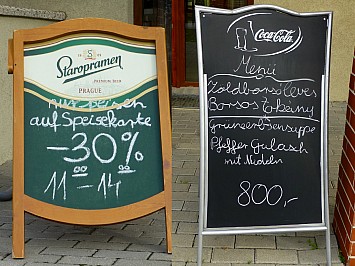 Staropramen
PREMIUM BEER
PRAGUE
nur speisen
auf Speisekarte
-30%
11 00 - 14 00
Coca-Cola
Menü
Zöldborsóleves
Borsos tokány
grüneerbsensuppe
Pfeffer Gulasch
mit Nudeln
800,-